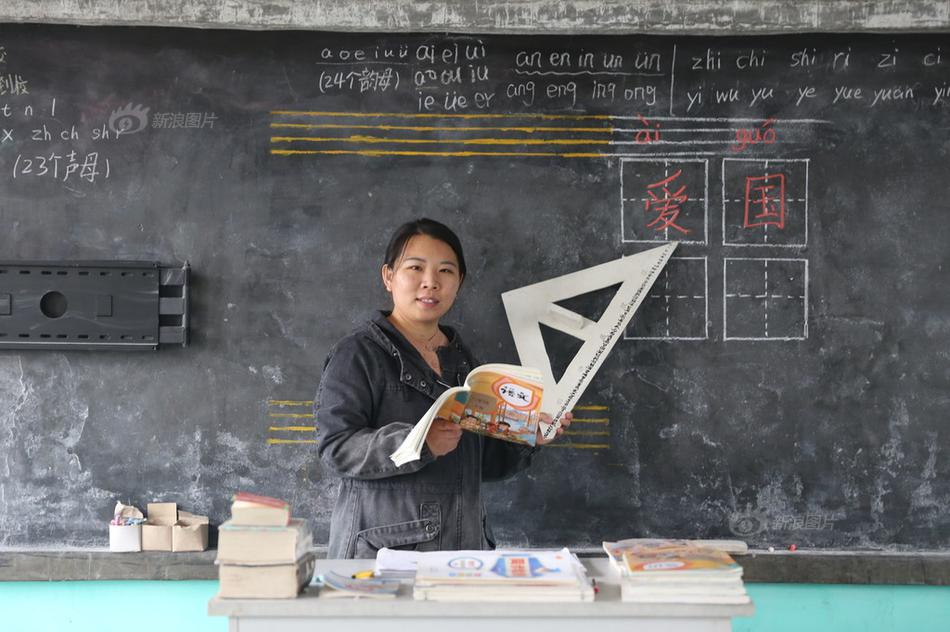 到校
t n l
x zh ch sh r
(23个声母)
a o e i u ü ai ei ui
(24个韵母) ao ou iu
ie üe er
an en in un ün
ang eng ing ong
zhi chi shi ri zi ci
yi wu yu ye yue yuan yin
ài guó
爱国
语文
新浪图片
新浪图片